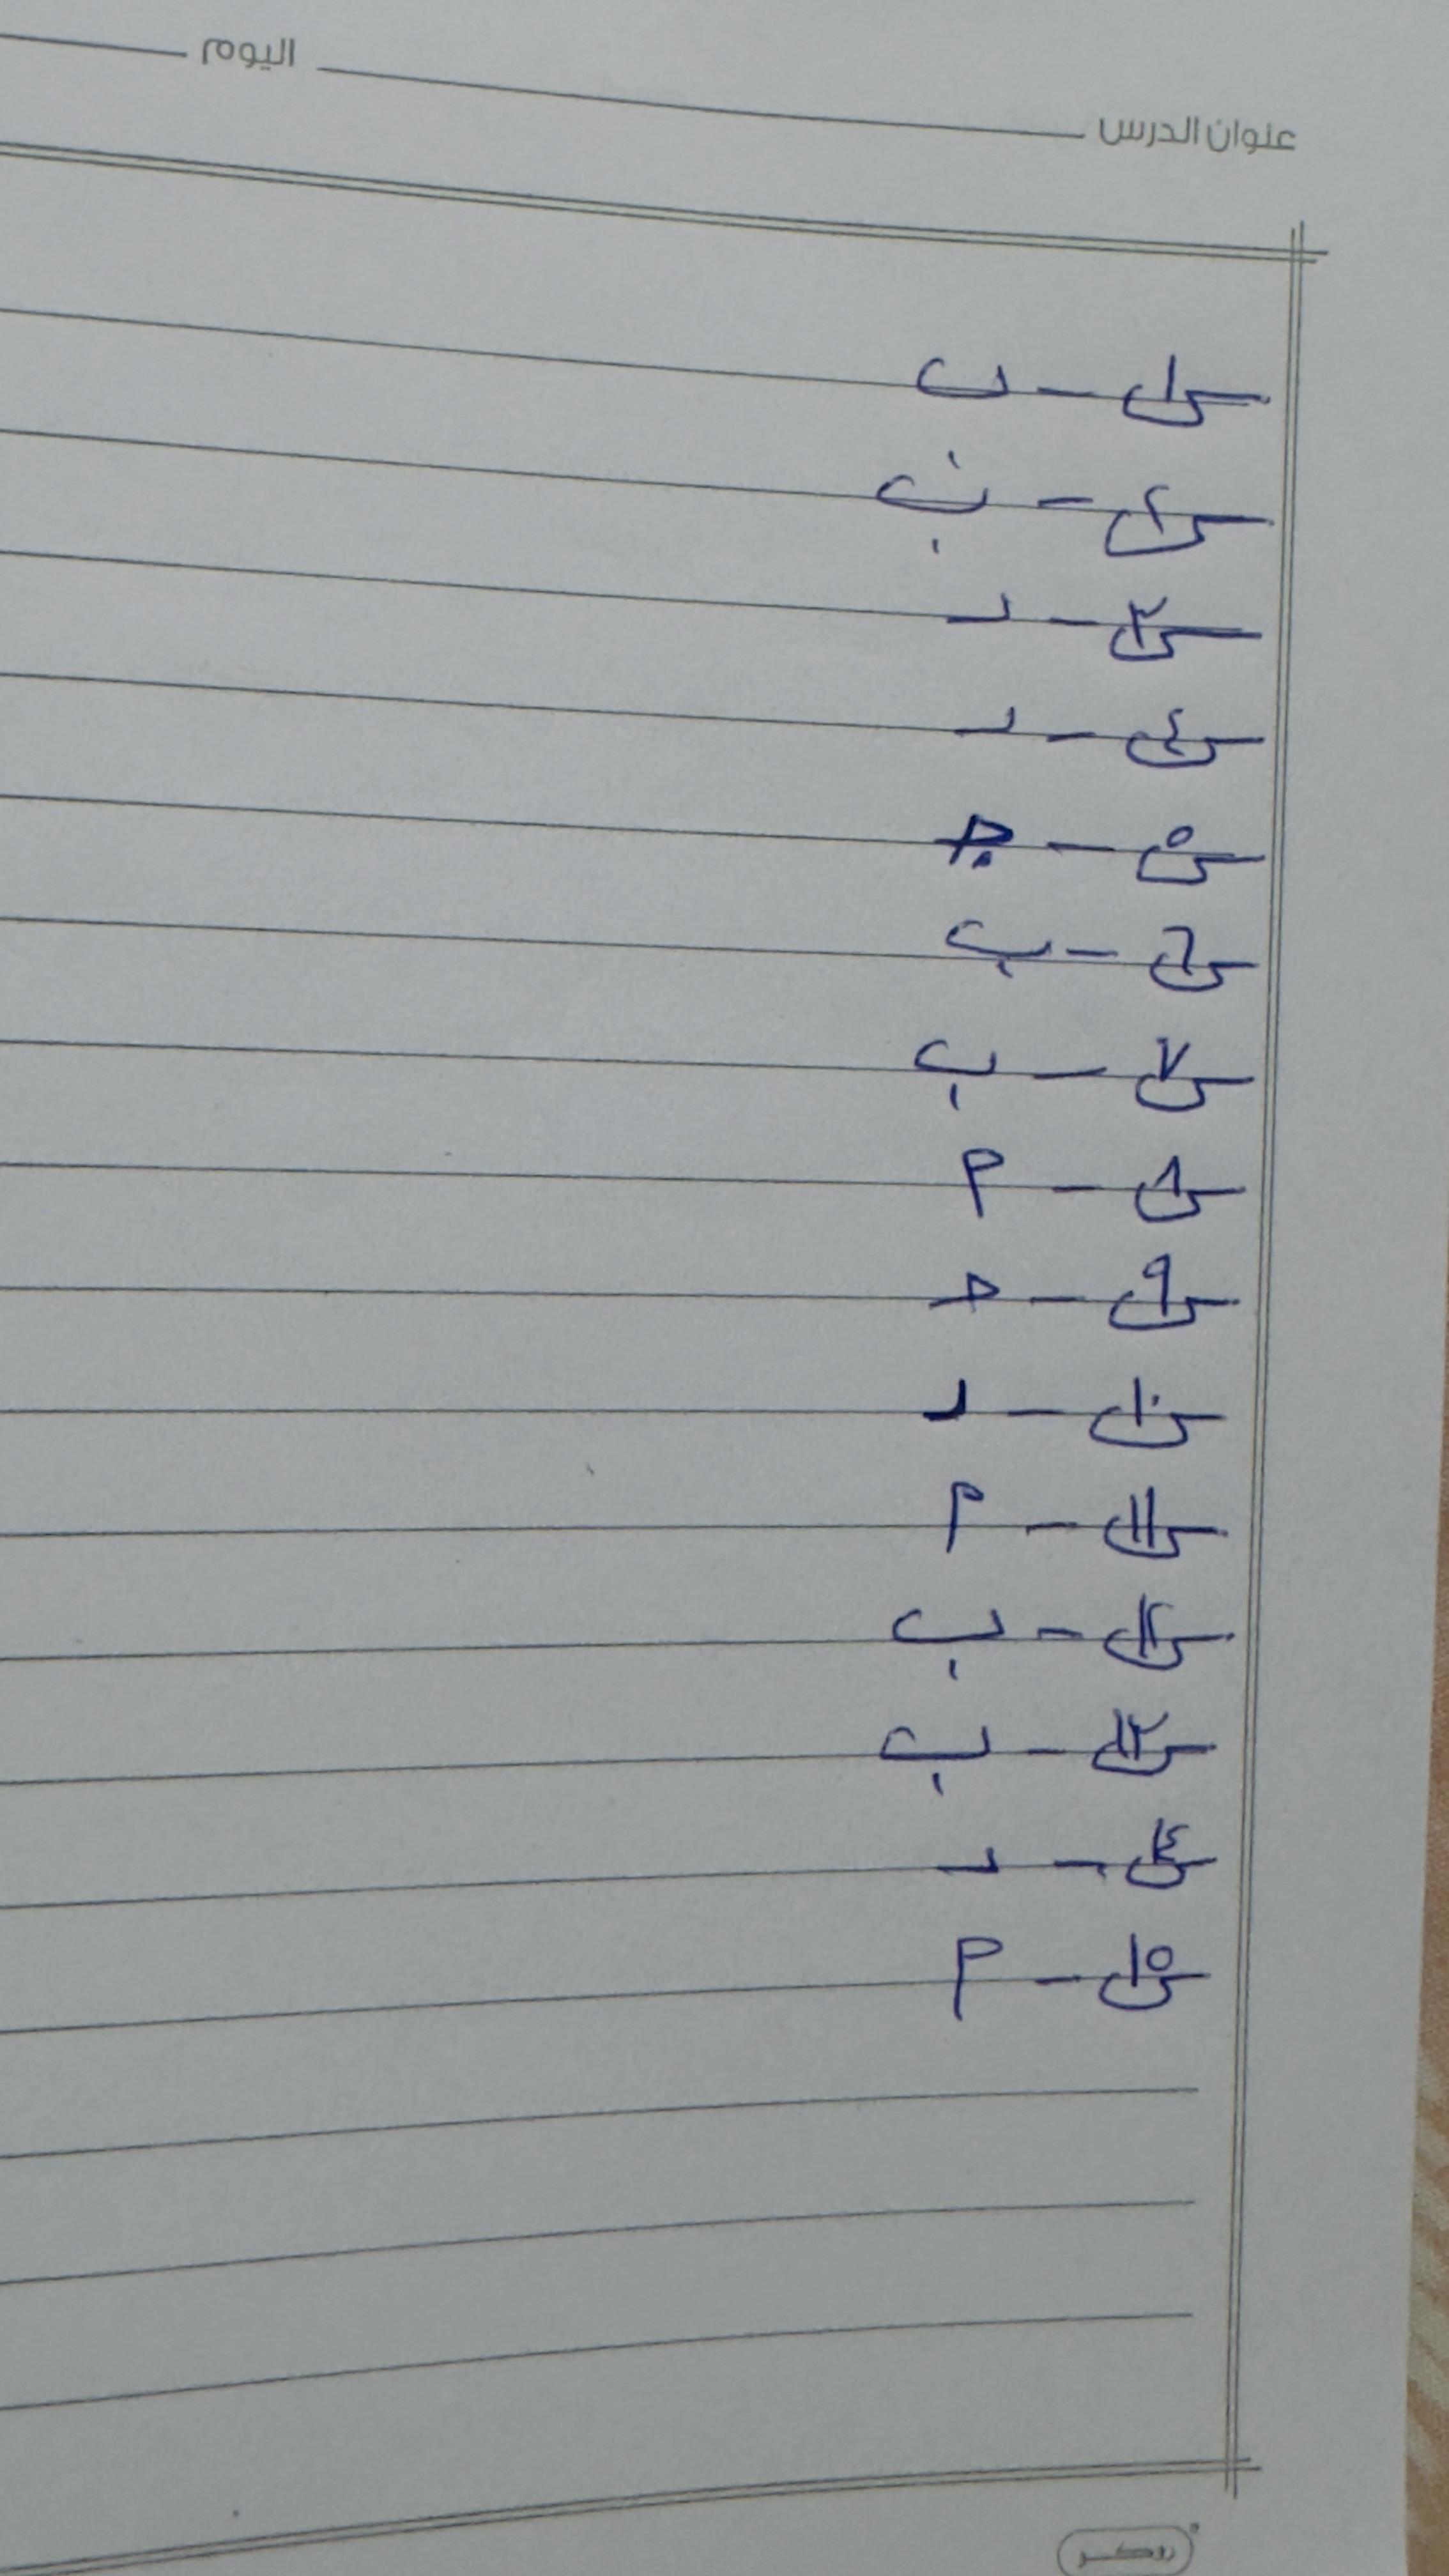 عنوان الدرس اليوم
س١ - ب
س٢ - ب
س٣ - د
س٤ - د
س٥ - جـ
س٦ - ب
س٧ - ب
س٨ - م
س٩ - حـ
س١٠ - د
س١١ - م
س١٢ - ب
س١٣ - ب
س١٤ - د
س١٥ - م
روكـر